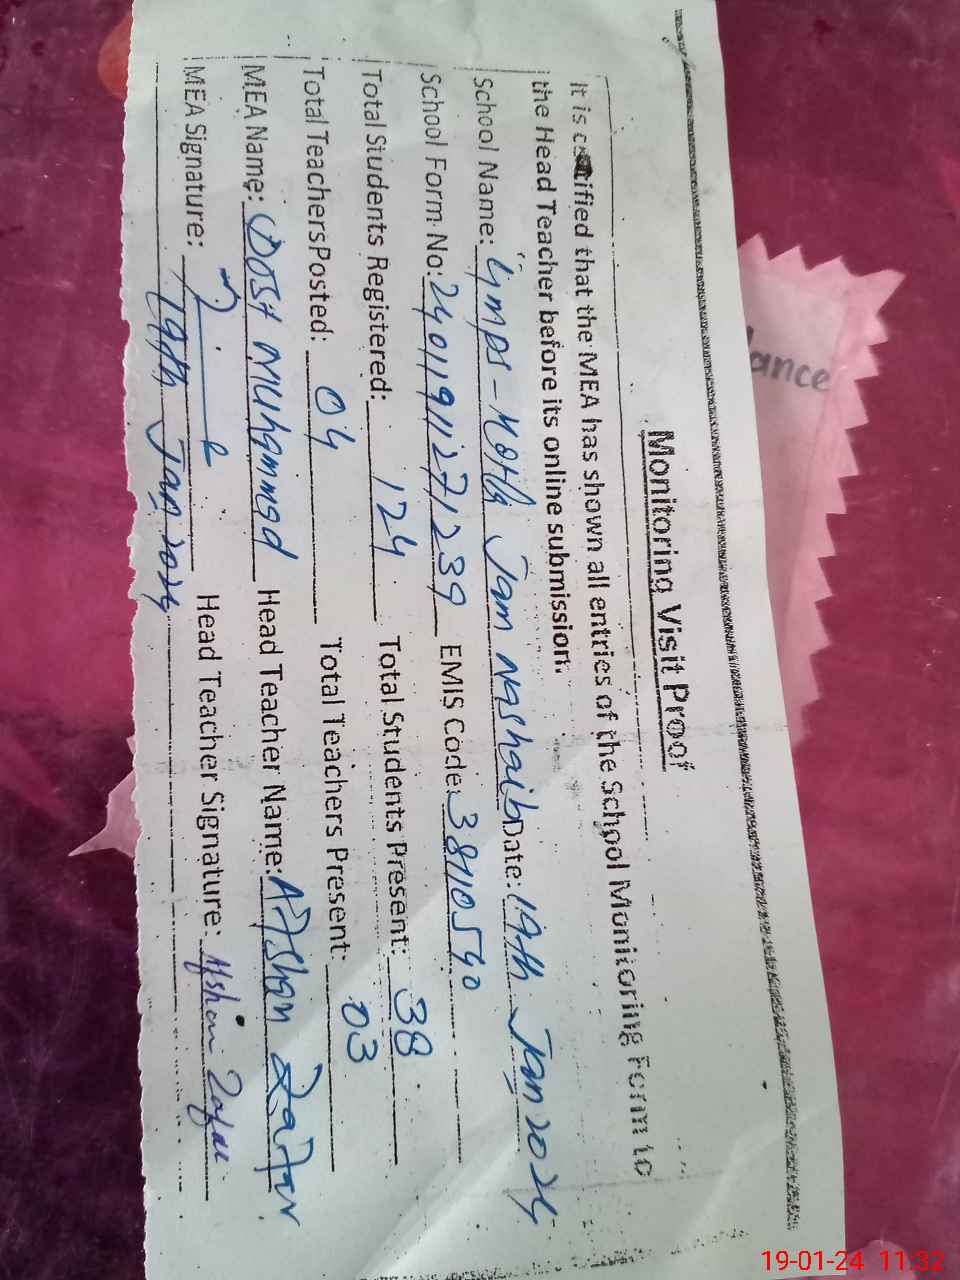 Monitoring Visit Proof
It is certified that the MEA has shown all entries of the School Monitoring Form to
the Head Teacher before its online submission.
School Name: GMPS-Kotla Jam nashaib Date: 19th Jan 2024
School Form No: 24011911271239 EMIS Code: 38110540
Total Students Registered: 124 Total Students Present: 38
Total Teachers Posted: 04 Total Teachers Present: 03
MEA Name: DOST MUHammad Head Teacher Name: Afshan Zafar
MEA Signature: Head Teacher Signature: Afshan Zafar
19th Jan, 2024
ance
19-01-24 11:32